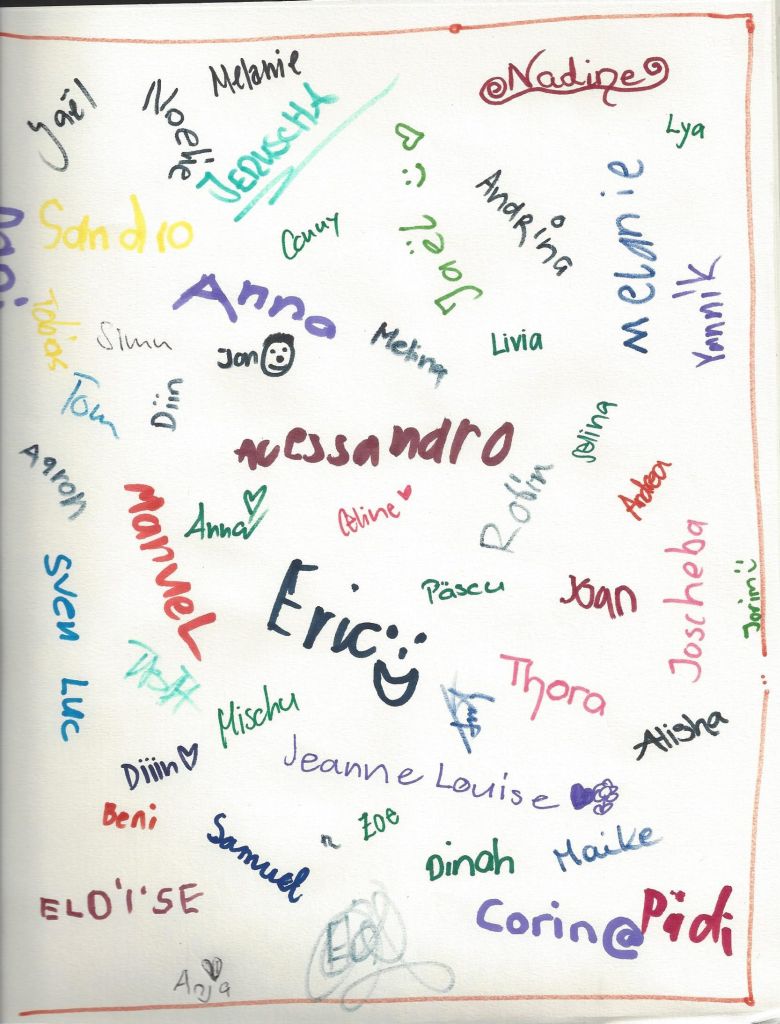 Melanie
Nadine
Yaël
Noelie
JERUSCHA
Lya
Andrina
melanie
Sandro
Conny
Jaël :)
Anna
Yannik
Tobias
Simu
Jan
Melina
Livia
Tom
Diin
Alessandro
Selina
Aaron
Manuel
Anna
Céline
Robin
Andrea
Joscheba
Sven Luc
Eric :D
Päscu
Joan
Jorim :)
Thora
Mischu
Alisha
Diiin
Jeanne Louise
Beni
Samuel
Zoe
Dinah
Maike
ELO'I'SE
Corin@
Pädi
Anja